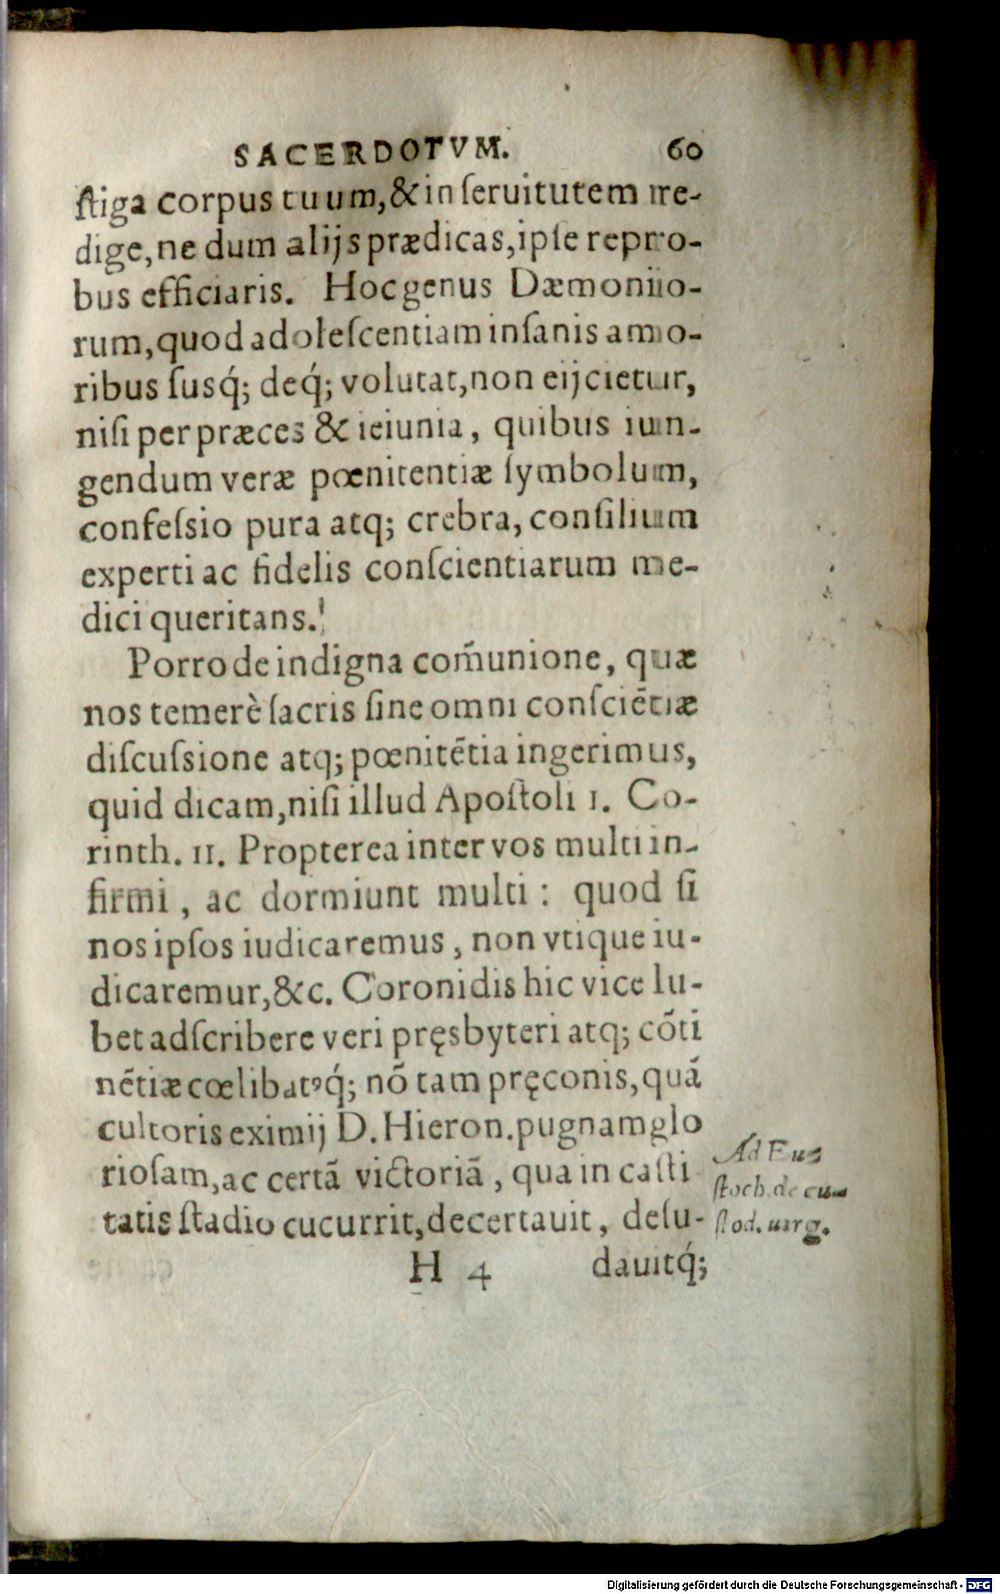 SACERDOTVM. 60
ſtiga corpus tuum,&in ſeruitutem re-
dige,ne dum alijs prædicas,ipſe repro-
bus efficiaris. Hoc genus Dæmonio-
rum,quod adoleſcentiam inſanis amo-
ribus ſusq́; deq́; volutat,non eijcietur,
niſi per præces & ieiunia, quibus iun-
gendum veræ pœnitentiæ ſymbolum,
confeſsio pura atq; crebra, conſilium
experti ac fidelis conſcientiarum me-
dici queritans.
Porro de indigna com̃unione, quæ
nos temerè ſacris ſine omni conſciẽtiæ
diſcuſsione atq; pœnitẽtia ingerimus,
quid dicam,niſi illud Apoſtoli 1. Co-
rinth. 11. Propterea inter vos multi in-
firmi, ac dormiunt multi: quod ſi
nos ipſos iudicaremus, non vtique iu-
dicaremur,&c. Coronidis hic vice lu-
bet adſcribere veri pręsbyteri atq; cõti
nẽtiæ cœlibatꝰq́; nõ tam pręconis,quã
cultoris eximij D. Hieron. pugnam glo
rioſam,ac certã victoriã, qua in caſti
tatis ſtadio cucurrit,decertauit, deſu-
Ad Eus
ſtoch. de cu-
ſtod. uirg.
H 4 dauitq́;
Digitalisierung gefördert durch die Deutsche Forschungsgemeinschaft - DFG